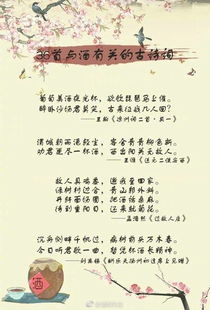 30首与酒有关的古诗词
葡萄美酒夜光杯，欲饮琵琶马上催。
醉卧沙场君莫笑，古来征战几人回？
——王翰《凉州词二首·其一》
渭城朝雨浥轻尘，客舍青青柳色新。
劝君更尽一杯酒，西出阳关无故人。
——王维《送元二使安西》
故人具鸡黍，邀我至田家。
绿树村边合，青山郭外斜。
开轩面场圃，把酒话桑麻。
待到重阳日，还来就菊花。
——孟浩然《过故人庄》
沉舟侧畔千帆过，病树前头万木春。
今日听君歌一曲，暂凭杯酒长精神。
——刘禹锡《酬乐天扬州初逢席上见赠》
酒